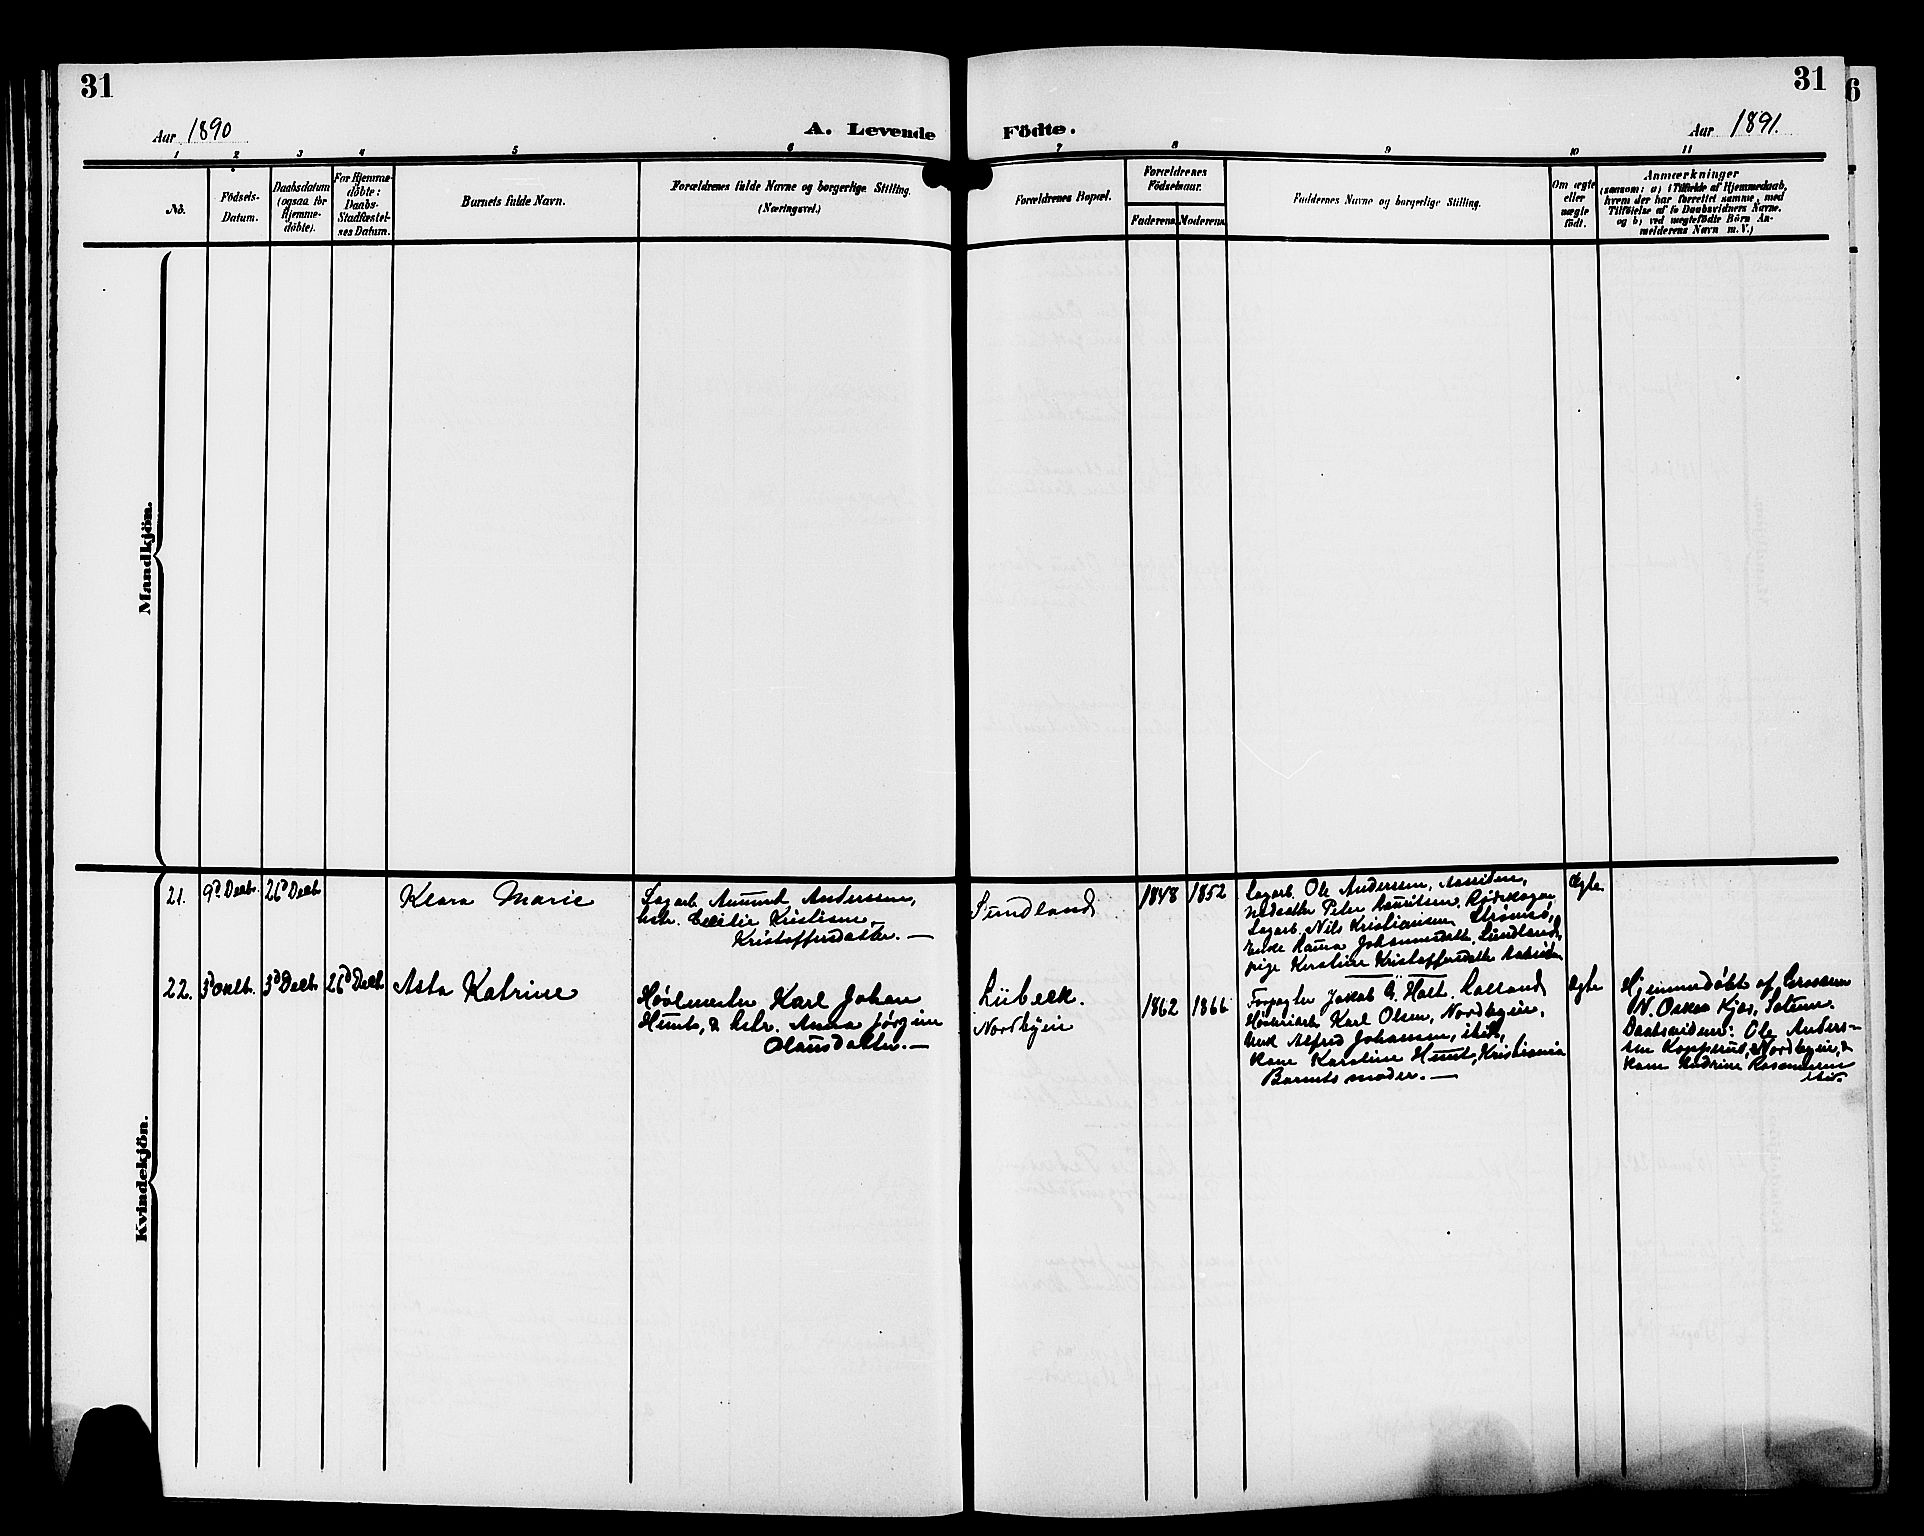 31
31
6
Aar 1890
A. Levende
Födte.
Aar 1891.
1
2
3
4
5
6
7
8
9
10
11
No.
Födsels-
Datum.
Daabsdatum
(ogsaa for
Hjemme-
döbte).
For Hjemme-
döbte:
Daabs-
Stadfæstel-
ses Datum.
Barnets fulde Navn.
Forældrenes fulde Navne og borgerlige Stilling.
(Næringsvei.)
Forældrenes Bopæl.
Forældrenes
Födselsaar.
Faderens.
Moderens.
Faddernes Navne og borgerlige Stilling.
Om ægte
eller
uægte
födt.
Anmærkninger
(saasom: a) i Tilfælde af Hjemmedaab,
hvem der har forrettet samme, med
Tilföielse af to Daabsvidners Navne.
og b) ved uægtefödte Börn An-
melderens Navn m. V.)
Mandkjön.
Kvindekjön.
21.
9d Decbr.
26d Decbr
Klara Marie
Sagarb. Amund Anderssen,
hstr. Cecilie Kristiane
Kristoffersdatter. —
Sundland
1848
1852
Sagarb. Ole Anderssen, Aassiden,
Peter Lauritsen,
Sagarb. Nils Kristiansen Strømsö,
Enke Johannesdatt. Sundland,
pige Kristoffersdatt.
Ægte
22.
3d
3d Decbr.
26d Decbr
Asta Katrine
Høvlmester Karl Johan
Hunt, & hstr. Anna Jørgine
Olausdatter. —
Lübeck.
Nordbyen
1862
1866
Forpagter Jakob G. Holt.
Karl Olsen, Nordbyen,
Alfred Johansen, ibid,
Kone Karoline Hunt, Kristiania
Barnets moder. —
Ægte
Hjemmedøbt af
N. Oskar Kjös,
Daabsvidner: Ole Anders-
sen Nordbyen, &
Kone
ibid.